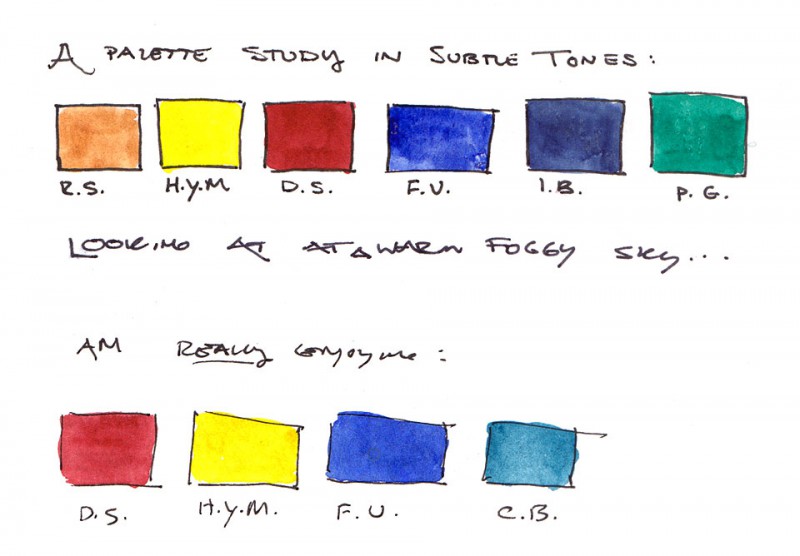 A PALETTE STUDY IN SUBTLE TONES:
R.S. H.Y.M D.S. F.U. I.B. P.G.
LOOKING AT AT A WARM FOGGY SKY...
AM REALLY ENJOYING:
D.S. H.Y.M. F.U. C.B.